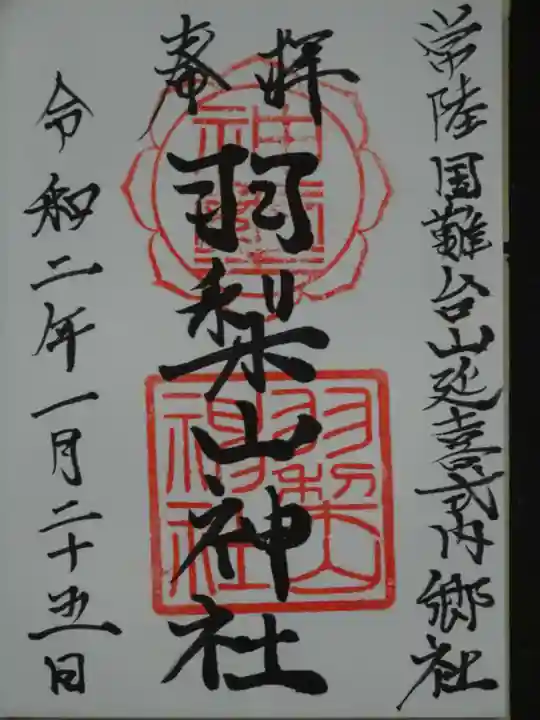 常陸国難台山延喜式内郷社
奉拝
羽梨山神社
令和二年一月二十五日
羽梨山
神社